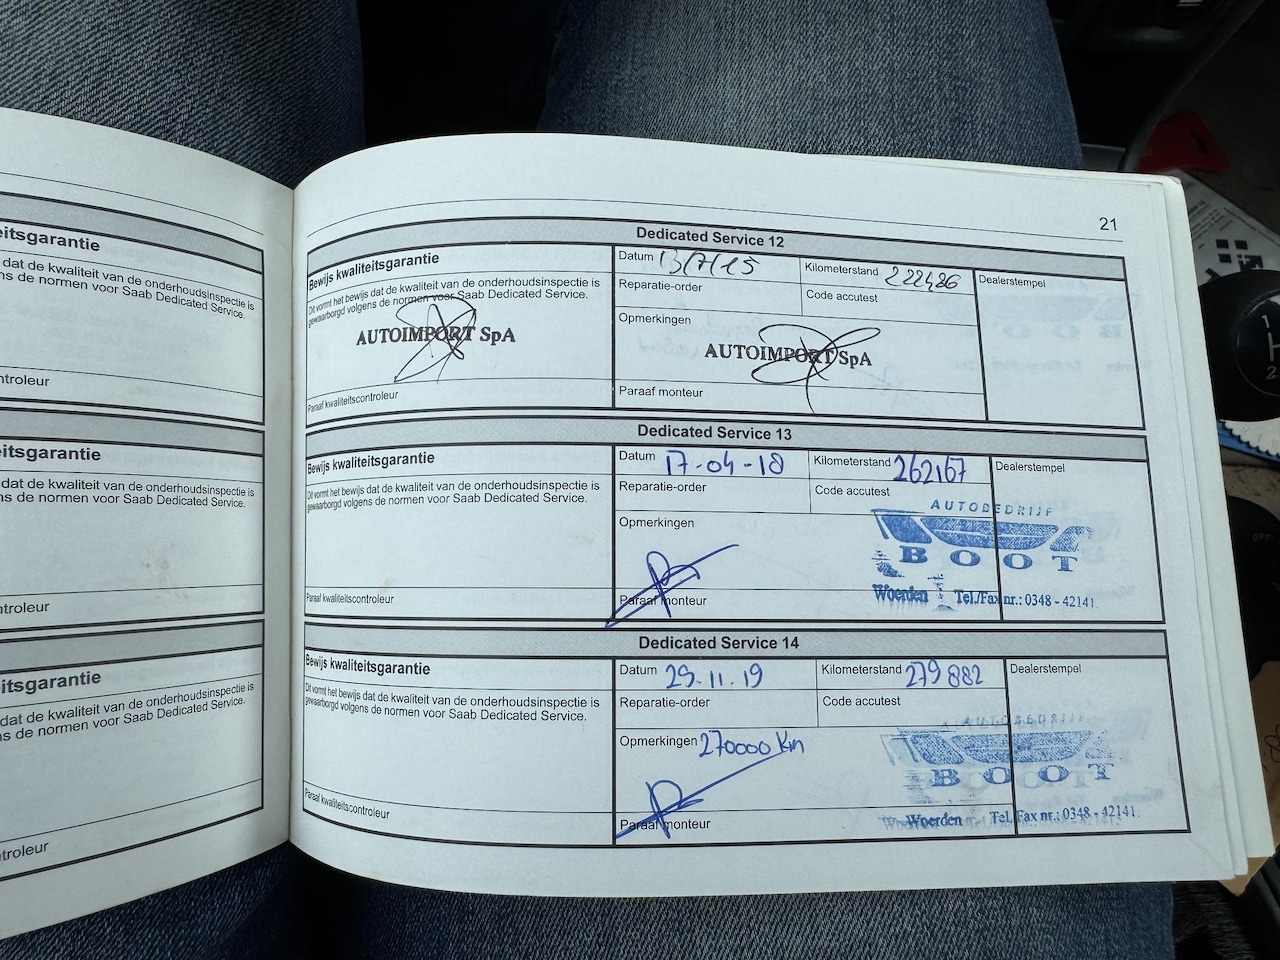 21
itsgarantie
dat de kwaliteit van de onderhoudsinspectie is
ns de normen voor Saab Dedicated Service.
ntroleur
itsgarantie
dat de kwaliteit van de onderhoudsinspectie is
ns de normen voor Saab Dedicated Service.
ntroleur
itsgarantie
dat de kwaliteit van de onderhoudsinspectie is
ns de normen voor Saab Dedicated Service.
ntroleur
Dedicated Service 12
Bewijs kwaliteitsgarantie
Dit vormt het bewijs dat de kwaliteit van de onderhoudsinspectie is
gewaarborgd volgens de normen voor Saab Dedicated Service.
AUTOIMPORT SpA
Paraaf kwaliteitscontroleur
Datum 13/7/15
Kilometerstand 222486
Dealerstempel
Reparatie-order
Code accutest
Opmerkingen
AUTOIMPORT SpA
Paraaf monteur
Dedicated Service 13
Bewijs kwaliteitsgarantie
Dit vormt het bewijs dat de kwaliteit van de onderhoudsinspectie is
gewaarborgd volgens de normen voor Saab Dedicated Service.
Paraaf kwaliteitscontroleur
Datum 17-04-18
Kilometerstand 262167
Dealerstempel
Reparatie-order
Code accutest
Opmerkingen
AUTOBEDRIJF
BOOT
Woerden Tel./Fax nr.: 0348 - 42141
Paraaf monteur
Dedicated Service 14
Bewijs kwaliteitsgarantie
Dit vormt het bewijs dat de kwaliteit van de onderhoudsinspectie is
gewaarborgd volgens de normen voor Saab Dedicated Service.
Paraaf kwaliteitscontroleur
Datum 29.11.19
Kilometerstand 279882
Dealerstempel
Reparatie-order
Code accutest
Opmerkingen 270000 Km
AUTOBEDRIJF
BOOT
Woerden Tel. Fax nr.: 0348 - 42141
Paraaf monteur